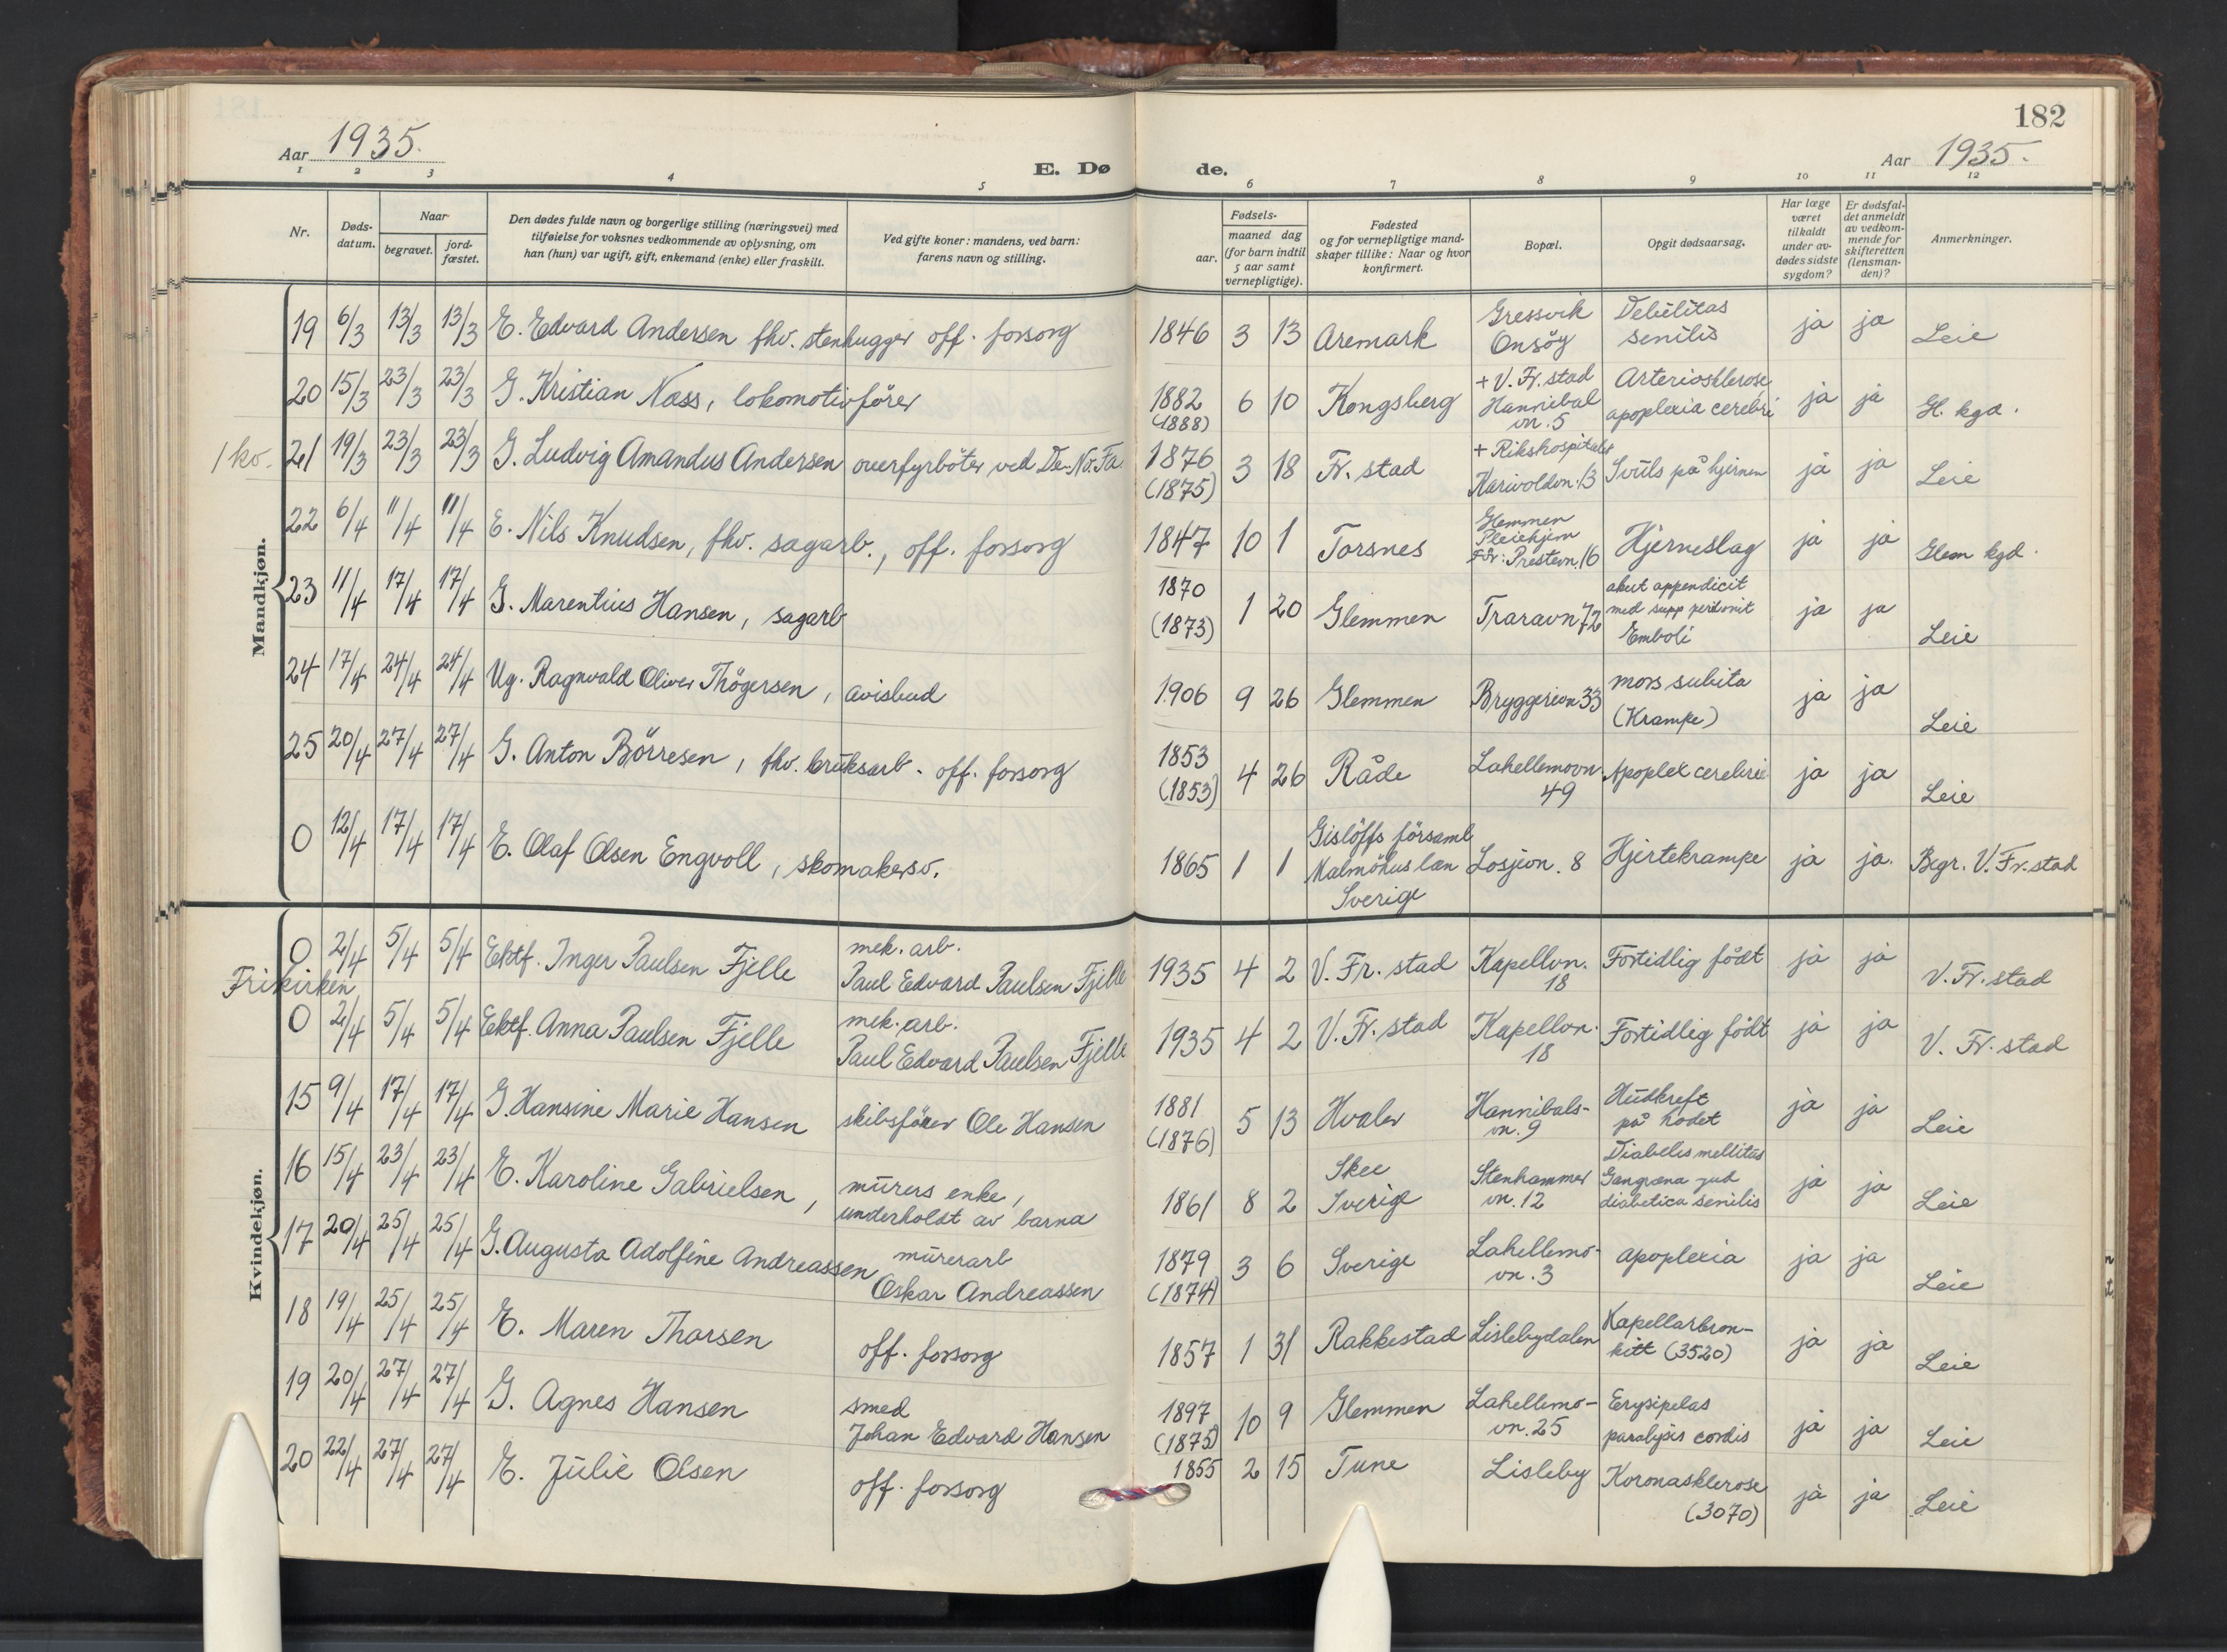 182
Aar 1935.
E. Dø de.
Aar 1935.
1 2 3 4 5 6 7 8 9 10 11 12
Nr.
Døds-
datum.
Naar
begravet.
jord-
fæstet.
Den dødes fulde navn og borgerlige stilling (næringsvei) med
tilføielse for voksnes vedkommende av oplysning, om
han (hun) var ugift, gift, enkemand (enke) eller fraskilt.
Ved gifte koner: mandens, ved barn:
farens navn og stilling.
Fødsels-
aar.
maaned dag
(for barn indtil
5 aar samt
vernepligtige).
Fødested
og for vernepligtige mand-
skaper tillike: Naar og hvor
konfirmert.
Bopæl.
Opgit dødsaarsag.
Har læge
været
tilkaldt
under av-
dødes sidste
sygdom?
Er dødsfal-
det anmeldt
av vedkom-
mende for
skifteretten
(lensman-
den)?
Anmerkninger.
Mandkjøn.
19 6/3 13/3 13/3 E. Edvard Andersen fhv. stenhugger off. forsorg 1846 3 13 Aremark Gressvik Onsöy Debilitas senilis ja ja Leie
20 15/3 23/3 23/3 G. Kristian Næss, lokomotivförer 1882 (1888) 6 10 Kongsberg + V. Fr. stad Hannibal vn. 5 Arteriosklerose, apoplexia cerebri ja ja Gl. kgd.
1 kv. 21 19/3 23/3 23/3 G. Ludvig Amandus Andersen overfyrböter ved De-No-Fa. 1876 (1875) 3 18 Fr. stad + Rikshospitalet Karivoldvn. 13 Svuls på hjernen ja ja Leie
22 6/4 11/4 11/4 E. Nils Knudsen, fhv. sagarb., off. forsorg 1847 10 1 Torsnes Glemmen Pleiehjem För: Prestevn. 16 Hjerneslag ja ja Glem kgd.
23 11/4 17/4 17/4 G. Marentius Hansen, sagarb 1870 (1873) 1 20 Glemmen Traravn 72 akut appendicit med supp peritonit Emboli ja ja Leie
24 17/4 24/4 24/4 Ug. Ragnvald Oliver Thögersen, avisbud 1906 9 26 Glemmen Bryggerivn 33 mors subita (Krampe) ja ja Leie
25 20/4 27/4 27/4 G. Anton Börresen, fhv. bruksarb. off. forsorg 1853 (1853) 4 26 Råde Lahellemovn. 49 Apoplex cerebrie ja ja Leie
0 12/4 17/4 17/4 E. Olaf Olsen Engvoll, skomakersv. 1865 1 1 Gislöffs församl Malmöhus læn Sverige Losjevn. 8 Hjertekrampe ja ja. Begr. V. Fr. stad
Kvindekjøn.
0 2/4 5/4 5/4 Ektf. Inger Paulsen Fjelle mek. arb. Paul Edvard Paulsen Fjelle 1935 4 2 V. Fr. stad Kapellvn. 18 Fortidlig född ja ja V. Fr. stad
Frikirken
0 2/4 5/4 5/4 Ektf. Anna Paulsen Fjelle mek. arb. Paul Edvard Paulsen Fjelle 1935 4 2 V. Fr. stad Kapellvn. 18 Fortidlig född ja ja V. Fr. stad
15 9/4 17/4 17/4 G. Hansine Marie Hansen skibsförer Ole Hansen 1881 (1876) 5 13 Hvaler Hannibals- vn. 9 Hudkreft på hodet ja ja Leie
16 15/4 23/4 23/4 E. Karoline Gabrielsen, murers enke, underholdt av barna 1861 8 2 Skee Sverige Stenhammer vn. 12 Diabetes mellitus Gangræna diabetica senilis ja ja Leie
17 20/4 25/4 25/4 G. Augusta Adolfine Andreassen murerarb Oskar Andreassen 1879 (1874) 3 6 Sverige Lahellemo- vn. 3 apoplexia ja ja Leie
18 19/4 25/4 25/4 E. Maren Thorsen off. forsorg 1857 1 31 Rakkestad Lislebydalen Kapellarbron- kitt (3520) ja ja Leie
19 20/4 27/4 27/4 G. Agnes Hansen smed Johan Edvard Hansen 1897 (1875) 10 9 Glemmen Lahellemo- vn. 25 Erysipelas paralysis cordis ja ja Leie
20 22/4 27/4 27/4 E. Julie Olsen off. forsorg 1855 2 15 Tune Lisleby Koronasklerose (3070) ja ja Leie